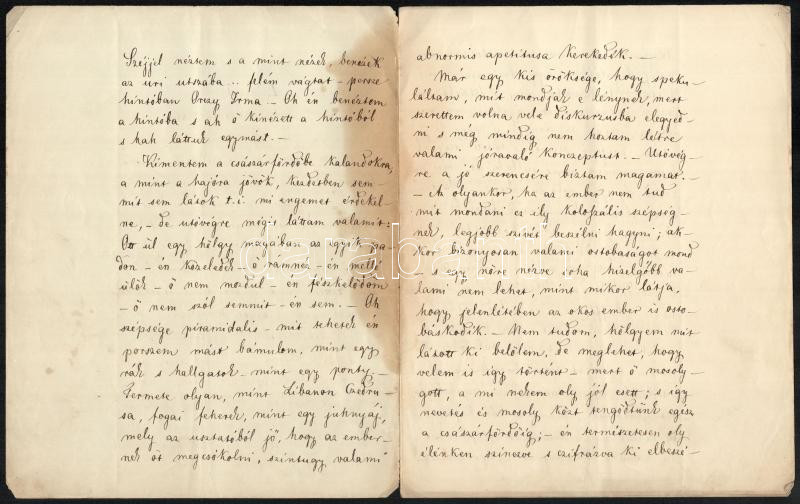 Széjjel néztem s a mint nézek, benézek
az uri utszába... felém vágtat - persze
hintóban Orczy Irma. - Oh én benéztem
a hintóba s ah ő kinézett a hintóból
s hah láttuk egymást. -
Kimentem a császárfördőbe kalandokra,
a mint a hajóra jövök, kezdetben sem-
mit sem látok t.i. mi engemet érdekel-
ne, - de utóvégre mégis láttam valamit:
Ott ül egy hölgy magában az egyik pa-
don - én közeledek - ő rámnéz - én mellé
ülök - ő nem mozdul - én fészkelődöm
- ő nem szól semmit - én sem. - Oh
szépsége piramidális - mit tehetek én
porszem mást bámulom, mint egy
rák s hallgatok - mint egy ponty. -
Termete olyan, mint Libanon Czédru-
sa, fogai fehérek, mint egy juhnyáj,
mely az usztatóból jő, hogy az ember-
nek őt megcsókolni, szintugy valami
abnormis apetitusa kerekedik. -
Már egy kis öröksége, hogy speku-
láltam, mit mondjak e lénynek, mert
szerettem volna vele diskurzusba elegyed-
ni s még mindig nem hoztam létre
valami jóravaló konzeptust. - Utóvég-
re a jó szerencsére biztam magamat. -
- A olyankor, ha az ember nem tud
mit mondani es ily kolosszális szépség-
nek, legjobb szivét beszélni hagyni; ak-
kor bizonyosan valami ostobaságot mond
- s egy nőre nézve soha hizelgőbb va-
lami nem lehet, mint mikor látja,
hogy jelenlétében az okos ember is osto-
báskodik. - Nem tudom, hölgyem mit
látott ki belőlem, de meglehet, hogy
velem is igy történt - mert ő mosoly-
gott, a mi nekem oly jól esett; s igy
nevetés és mosoly közt tengődtünk egész
a császárfördőig; - én természetesen oly
élénken szinezve s czifrázva ki elbeszé-
darabanth